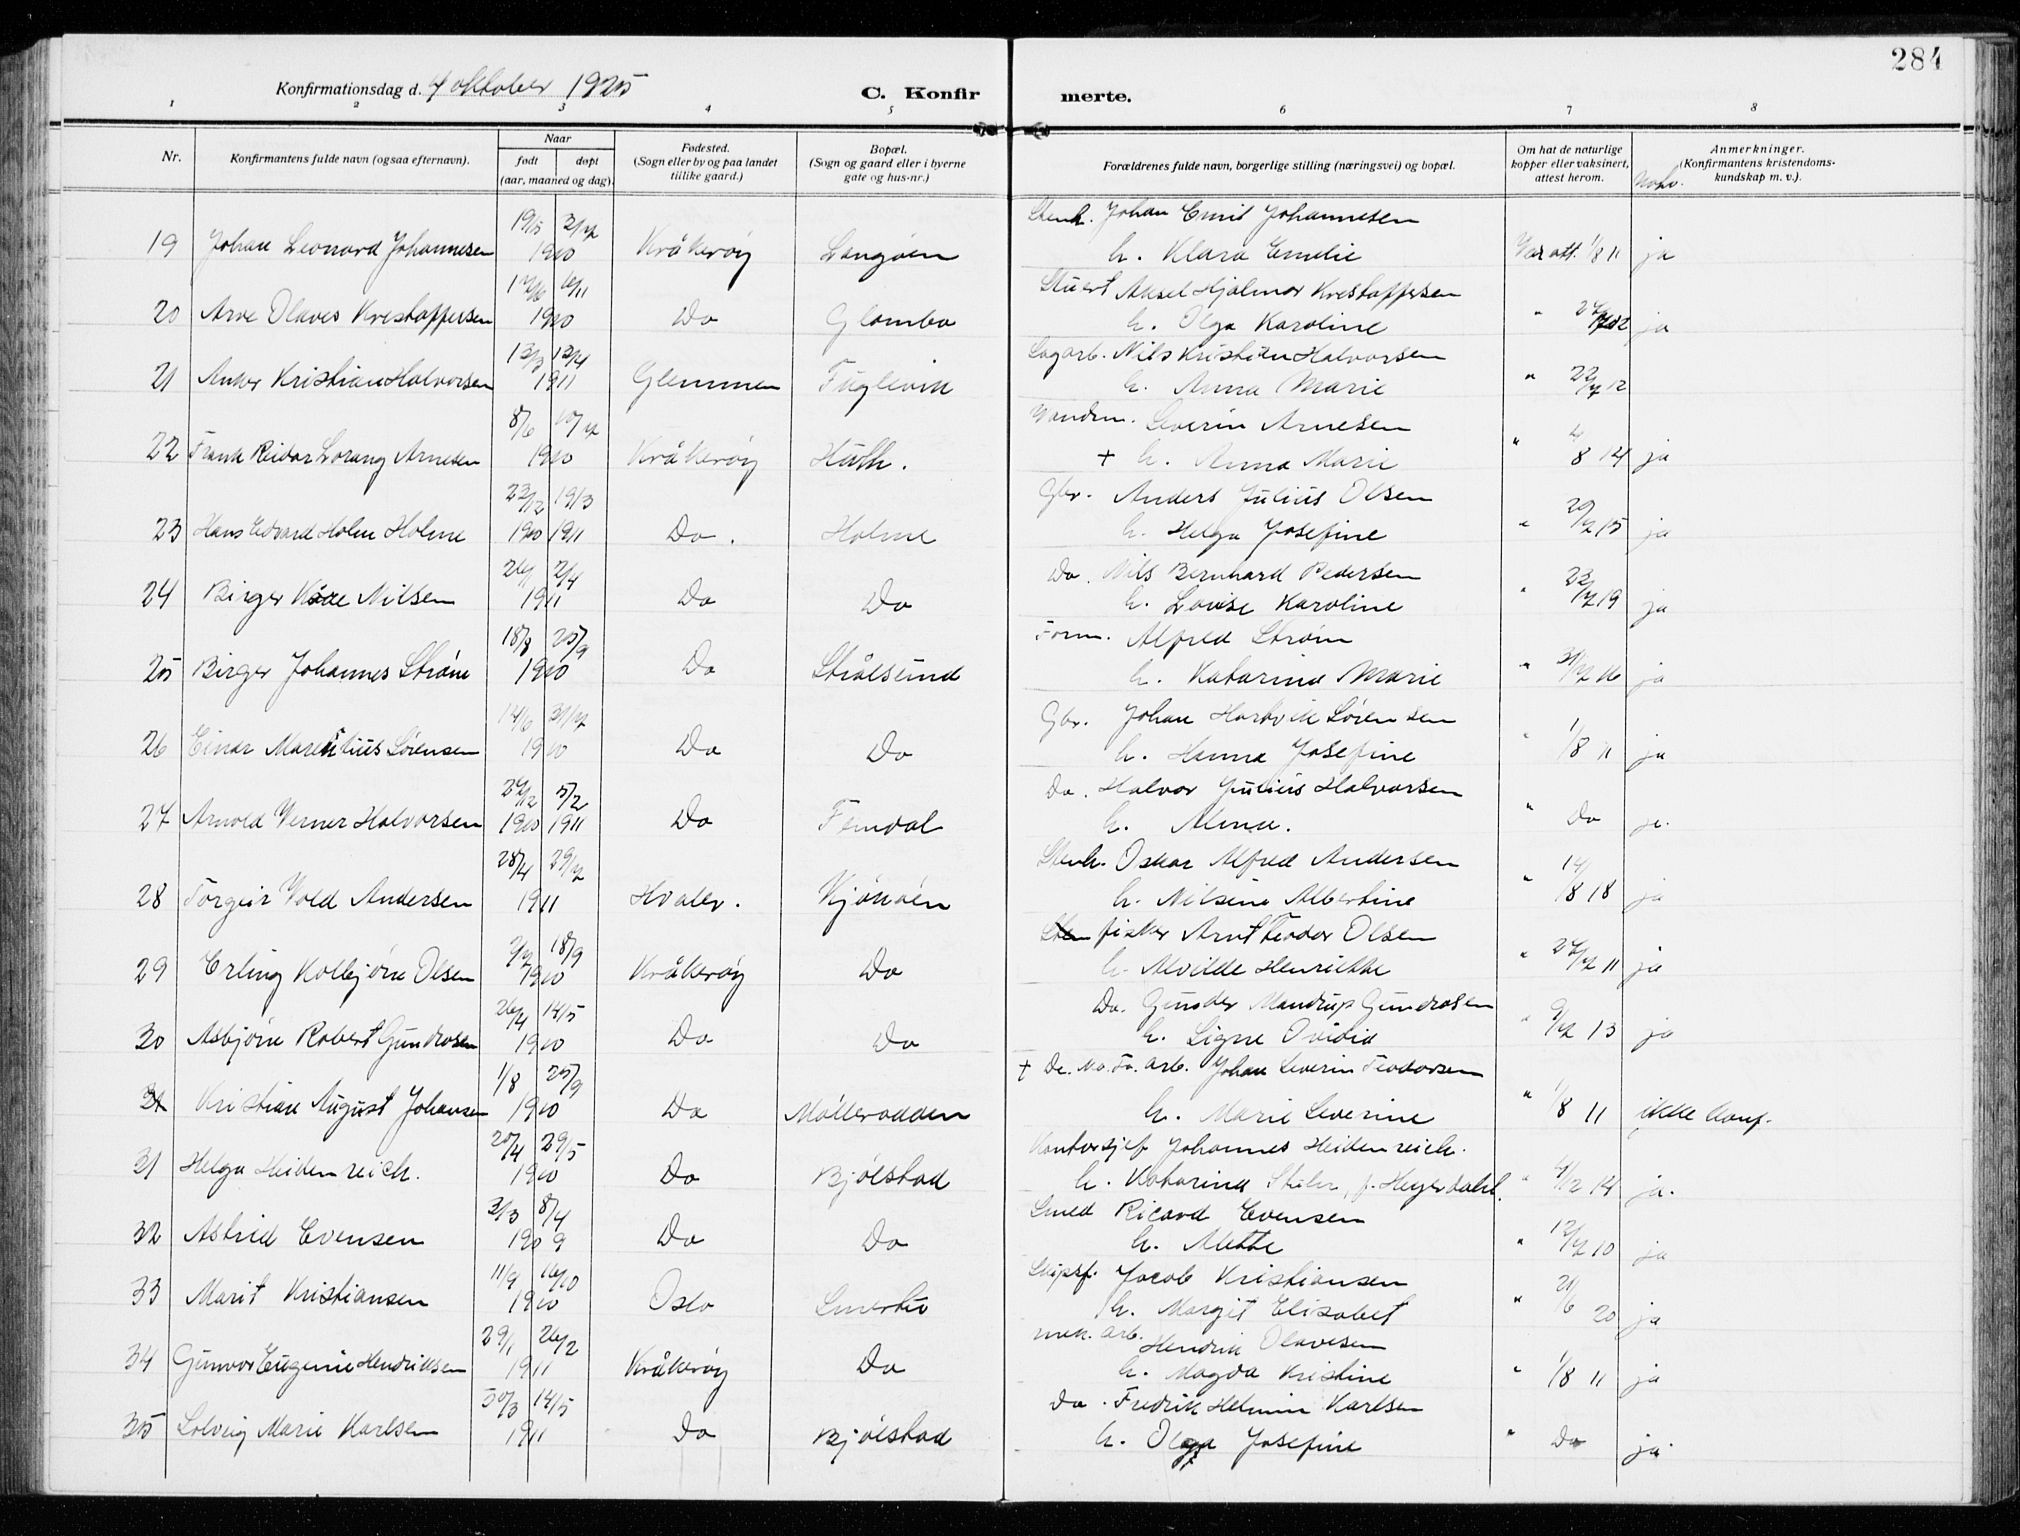 284
Konfirmationsdag d. 4 oktober 1925
C. Konfirmerte.
1 2 3 4 5 6 7 8
Nr.
Konfirmantens fulde navn (ogsaa efternavn).
Naar
født døpt
(aar, maaned og dag).
Fødested.
(Sogn eller by og paa landet
tillike gaard.)
Bopæl.
(Sogn og gaard eller i byerne
gate og hus-nr.)
Forældrenes fulde navn, borgerlige stilling (næringsvei) og bopæl.
Om hat de naturlige
kopper eller vaksinert,
attest herom.
Anmerkninger.
(Konfirmantens kristendoms-
kundskap m. v.).
Stenh. Johan Emil Johannesen
19 Johan Leonard Johannesen 1910 Kråkerøy Langøen h. Klara Emelie Vac att. 1/8 11 ja
Stuert Aksel Hjalmar Kristoffersen
20 Arve Olaves Kristoffersen 1910 Do Glombo h. Olga Karoline " ja
13/3 13/4 Sagarb. Nils Kristian Halvorsen
21 Anker Kristian Halvorsen 1911 Glemmen Fuglevik h. Anna Marie " 22/7 12
8/6 10/7 Severin Arnesen
22 Frank Reidar Lorang Arnesen 1910 Kråkerøy Huth. + h. Anna Marie " 4/8 14 ja
23/12 19/3 Gbr. Anders Julius Olsen
23 Hans Edvard Holm Holme 1910 1911 Do. Holme h. Helga Josefine " 20/7 15 ja
26/1 2/4 Do. Nils Bernhard Pedersen
24 Birger Kåre Nilsen 1911 Do Do h. Lovise Karoline " 23/7 19 ja
18/8 25/9 Form. Alfred Strøm
25 Birger Johannes Strøm 1910 Do Strålsund h. Katarina Marie " 31/7 16 ja
14/6 31/7 Gbr. Johan Hartvik Sørensen
26 Einar Marentius Sørensen 1910 Do Do h. Hanna Josefine " 1/8 11 ja
27/12 5/2 Do. Halvor Julius Halvorsen
27 Arnold Verner Halvorsen 1910 1911 Do Femdal h. Alma. " Do ja.
28/4 29/7 Stenh. Oskar Alfred Andersen
28 Torgeir Vold Andersen 1911 Hvaler. Kjøkøen h. Nilsine Albertine " 14/8 18 ja
7/7 18/9 fisker Arnt Teodor Olsen
29 Erling Kolbjørn Olsen 1910 Kråkerøy Do h. Alvilde Henrikke " 27/7 11 ja
26/4 14/5 Do. Gunder Mandrup Gundrosen
30 Asbjørn Robert Gundrosen 1910 Do Do h. Signe Ovidia " 9/7 13 ja
1/8 25/9 + De. No. Fa. arb. Johan Severin Teodorsen
31 Kristian August Johansen 1910 Do Mølleodden h. Marie Severine " 1/8 11 ikke konf.
20/4 29/5 Kontorsjef Johannes Heidenreich.
31 Helga Heidenreich. 1910 Do Bjølstad h. Katarina f. Heyerdahl. " 4/2 14 ja.
3/3 8/4 Smed Ricard Evensen
32 Astrid Evensen 1909 Do Do h. Mette " 12/7 10 ja
11/9 16/10 Skipsf. Jacob Kristiansen
33 Marit Kristiansen 1910 Oslo Smertu h. Margit Elisabet " 21/6 20 ja
29/1 26/2 mek. arb. Hendrik Olavesen
34 Gunvor Eugenie Hendriksen 1911 Kråkerøy Do h. Magda Kristine " 1/8 11 ja
30/3 14/5 Do. Fredrik Helmin Karlsen
35 Solveig Marie Karlsen 1911 Do Bjølstad h. Olga Josefine " Do ja.